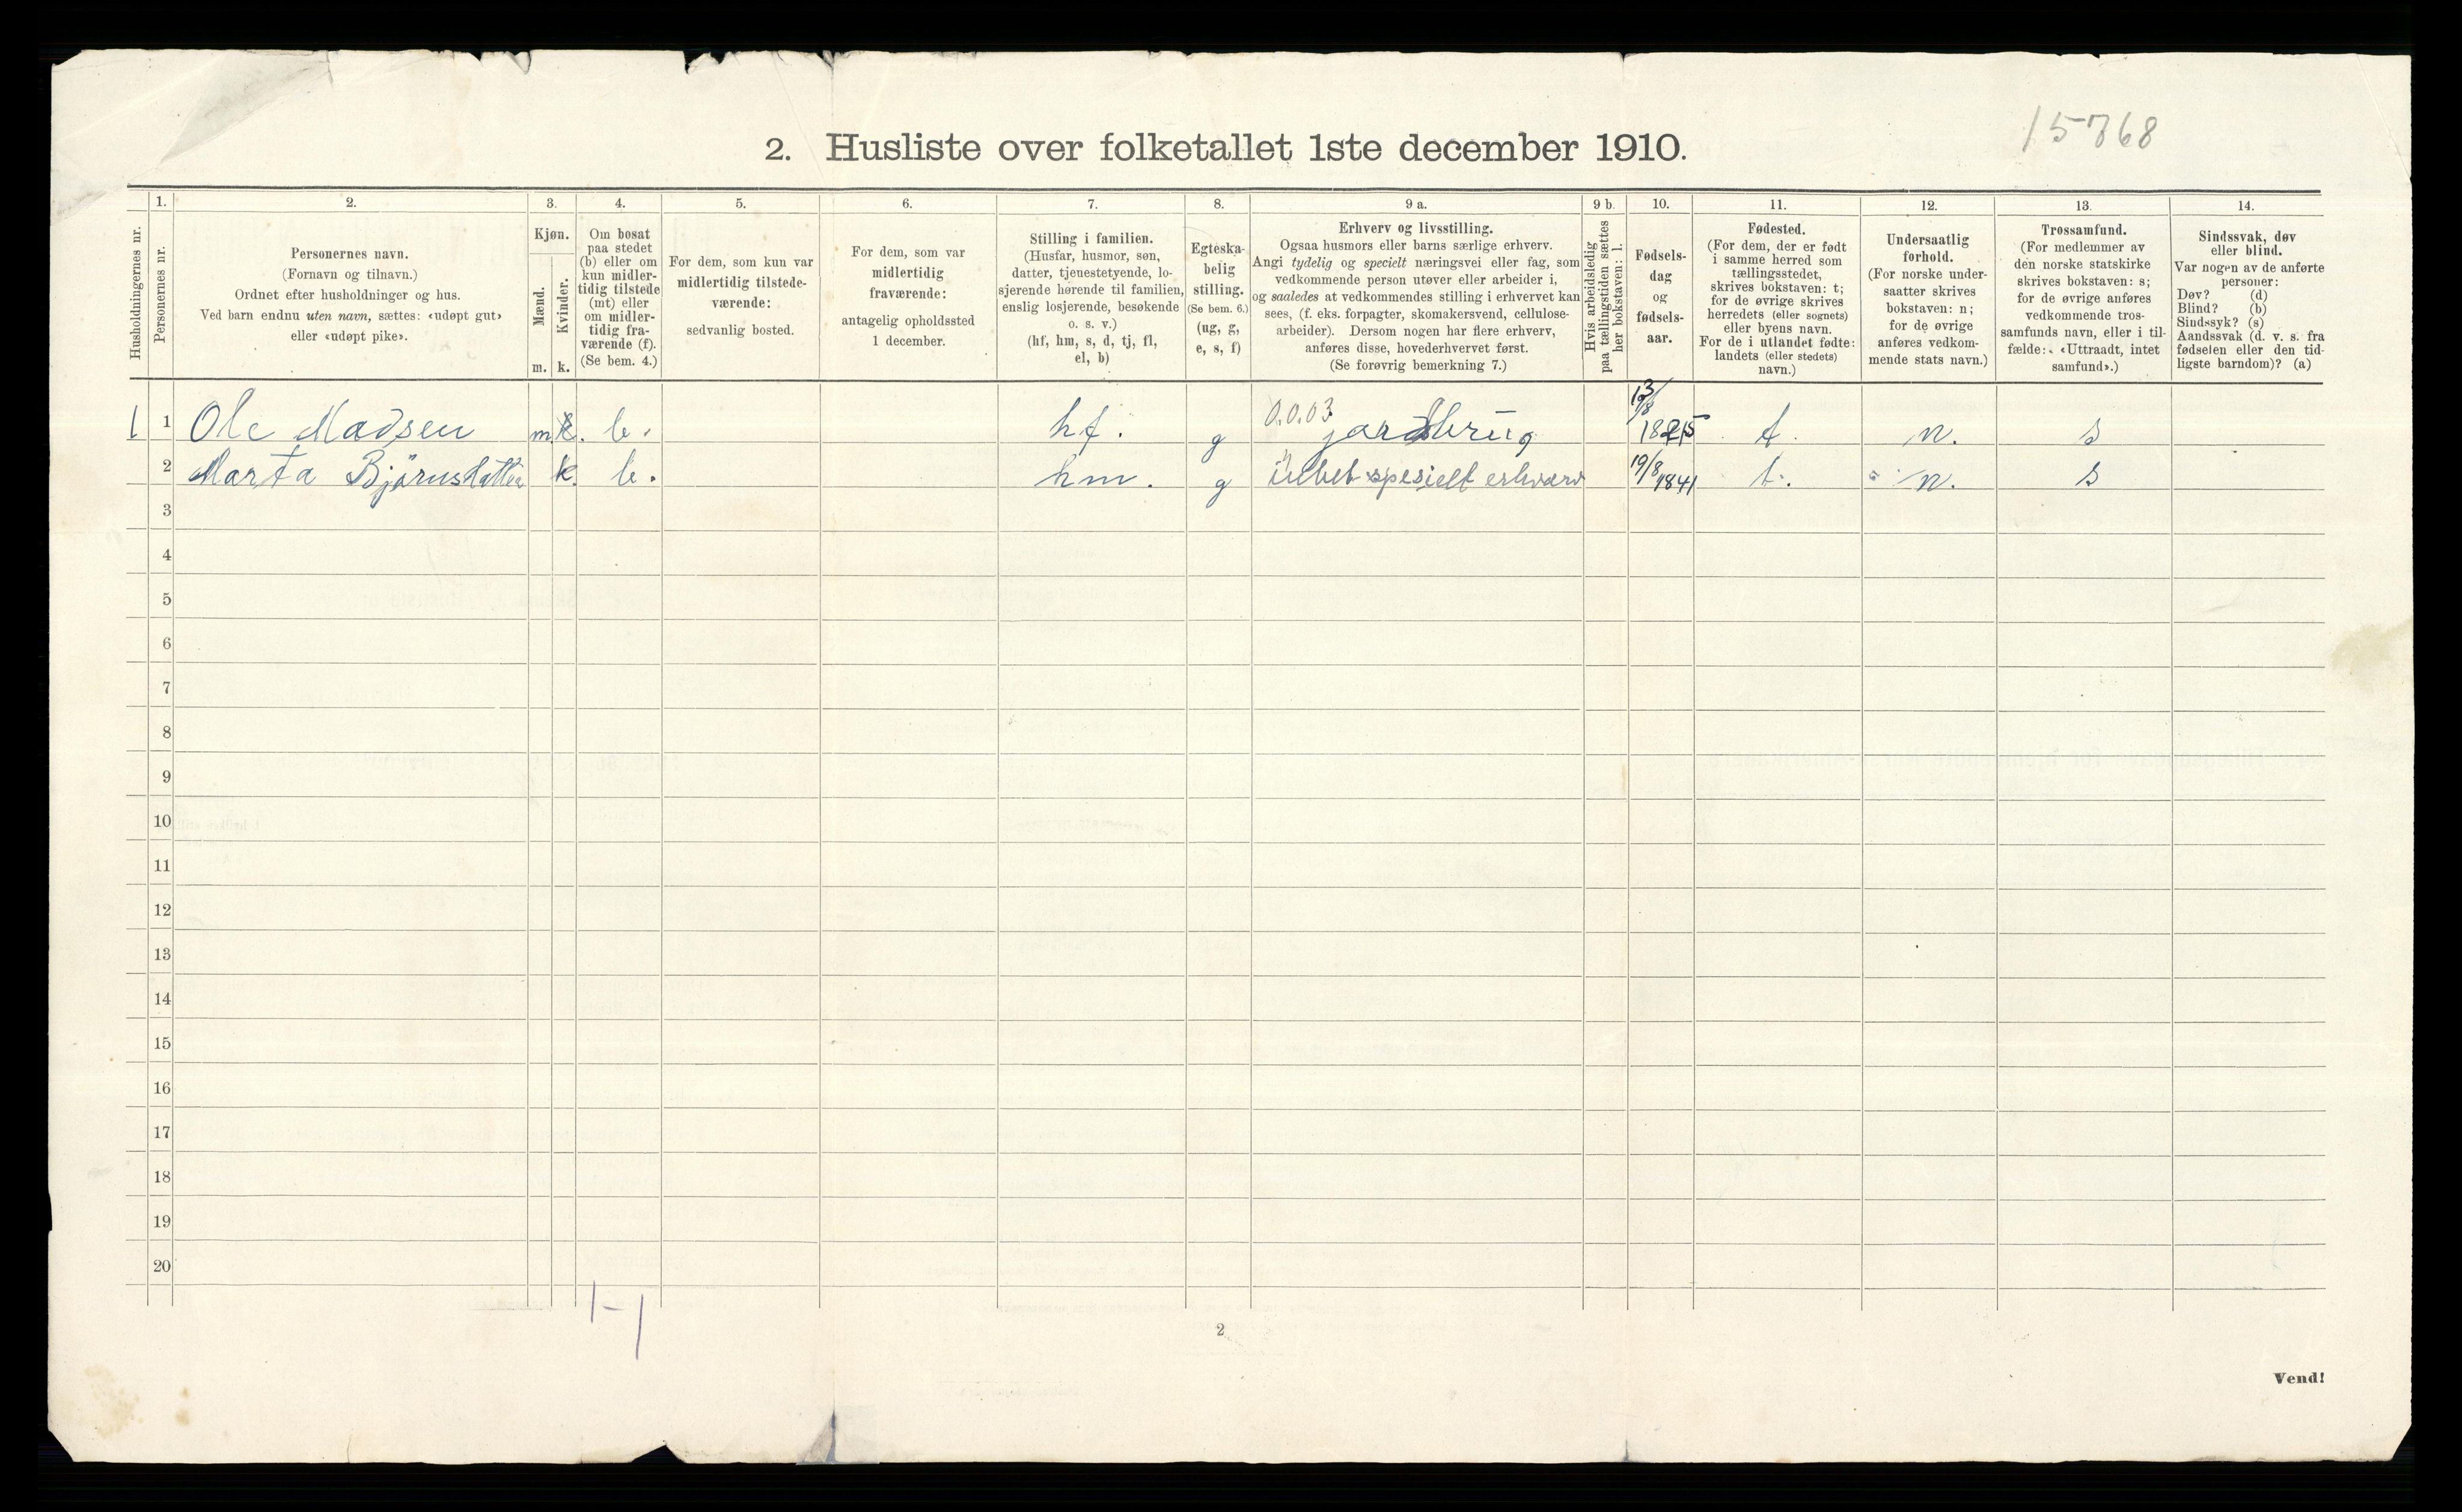 15768
2. Husliste over folketallet 1ste december 1910.
Husholdningernes nr.
1.
Personernes nr.
2.
Personernes navn.
(Fornavn og tilnavn.)
Ordnet efter husholdninger og hus.
Ved barn endnu uten navn, sættes: «udøpt gut»
eller «udøpt pike».
3.
Kjøn.
Mænd.
Kvinder.
m. k.
4.
Om bosat
paa stedet
(b) eller om
kun midler-
tidig tilstede
(mt) eller
om midler-
tidig fra-
værende (f).
(Se bem. 4.)
5.
For dem, som kun var
midlertidig tilstede-
værende:
sedvanlig bosted.
6.
For dem, som var
midlertidig
fraværende:
antagelig opholdssted
1 december.
7.
Stilling i familien.
(Husfar, husmor, søn,
datter, tjenestetyende, lo-
sjerende hørende til familien,
enslig losjerende, besøkende
o. s. v.)
(hf, hm, s, d, tj, fl,
el, b)
8.
Egteska-
belig
stilling.
(Se bem. 6.)
(ug, g,
e, s, f)
9 a.
Erhverv og livsstilling.
Ogsaa husmors eller barns særlige erhverv.
Angi tydelig og specielt næringsvei eller fag, som
vedkommende person utøver eller arbeider i,
og saaledes at vedkommendes stilling i erhvervet kan
sees, (f. eks. forpagter, skomakersvend, cellulose-
arbeider). Dersom nogen har flere erhverv,
anføres disse, hovederhvervet først.
(Se forøvrig bemerkning 7.)
9 b.
Hvis arbeidsledig
paa tællingstiden sættes
her bokstaven: l.
10.
Fødsels-
dag
og
fødsels-
aar.
11.
Fødested.
(For dem, der er født
i samme herred som
tællingsstedet,
skrives bokstaven: t;
for de øvrige skrives
herredets (eller sognets)
eller byens navn.
For de i utlandet fødte:
landets (eller stedets)
navn.)
12.
Undersaatlig
forhold.
(For norske under-
saatter skrives
bokstaven: n;
for de øvrige
anføres vedkom-
mende stats navn.)
13.
Trossamfund.
(For medlemmer av
den norske statskirke
skrives bokstaven: s;
for de øvrige anføres
vedkommende tros-
samfunds navn, eller i til-
fælde: «Uttraadt, intet
samfund».)
14.
Sindssvak, døv
eller blind.
Var nogen av de anførte
personer:
Døv? (d)
Blind? (b)
Sindssyk? (s)
Aandssvak (d. v. s. fra
fødselen eller den tid-
ligste barndom)? (a)
1 1 Ole Madsen m k. b. hf. g 0.0.03 jordbrug t. n. s
2 Marta Björnsdatter k. b. hm. g spesielt erhværv 19/8 1841 t. n. s
3
4
5
6
7
8
9
10
11
12
13
14
15
16
17
18
19
20
1-1
2
Vend!